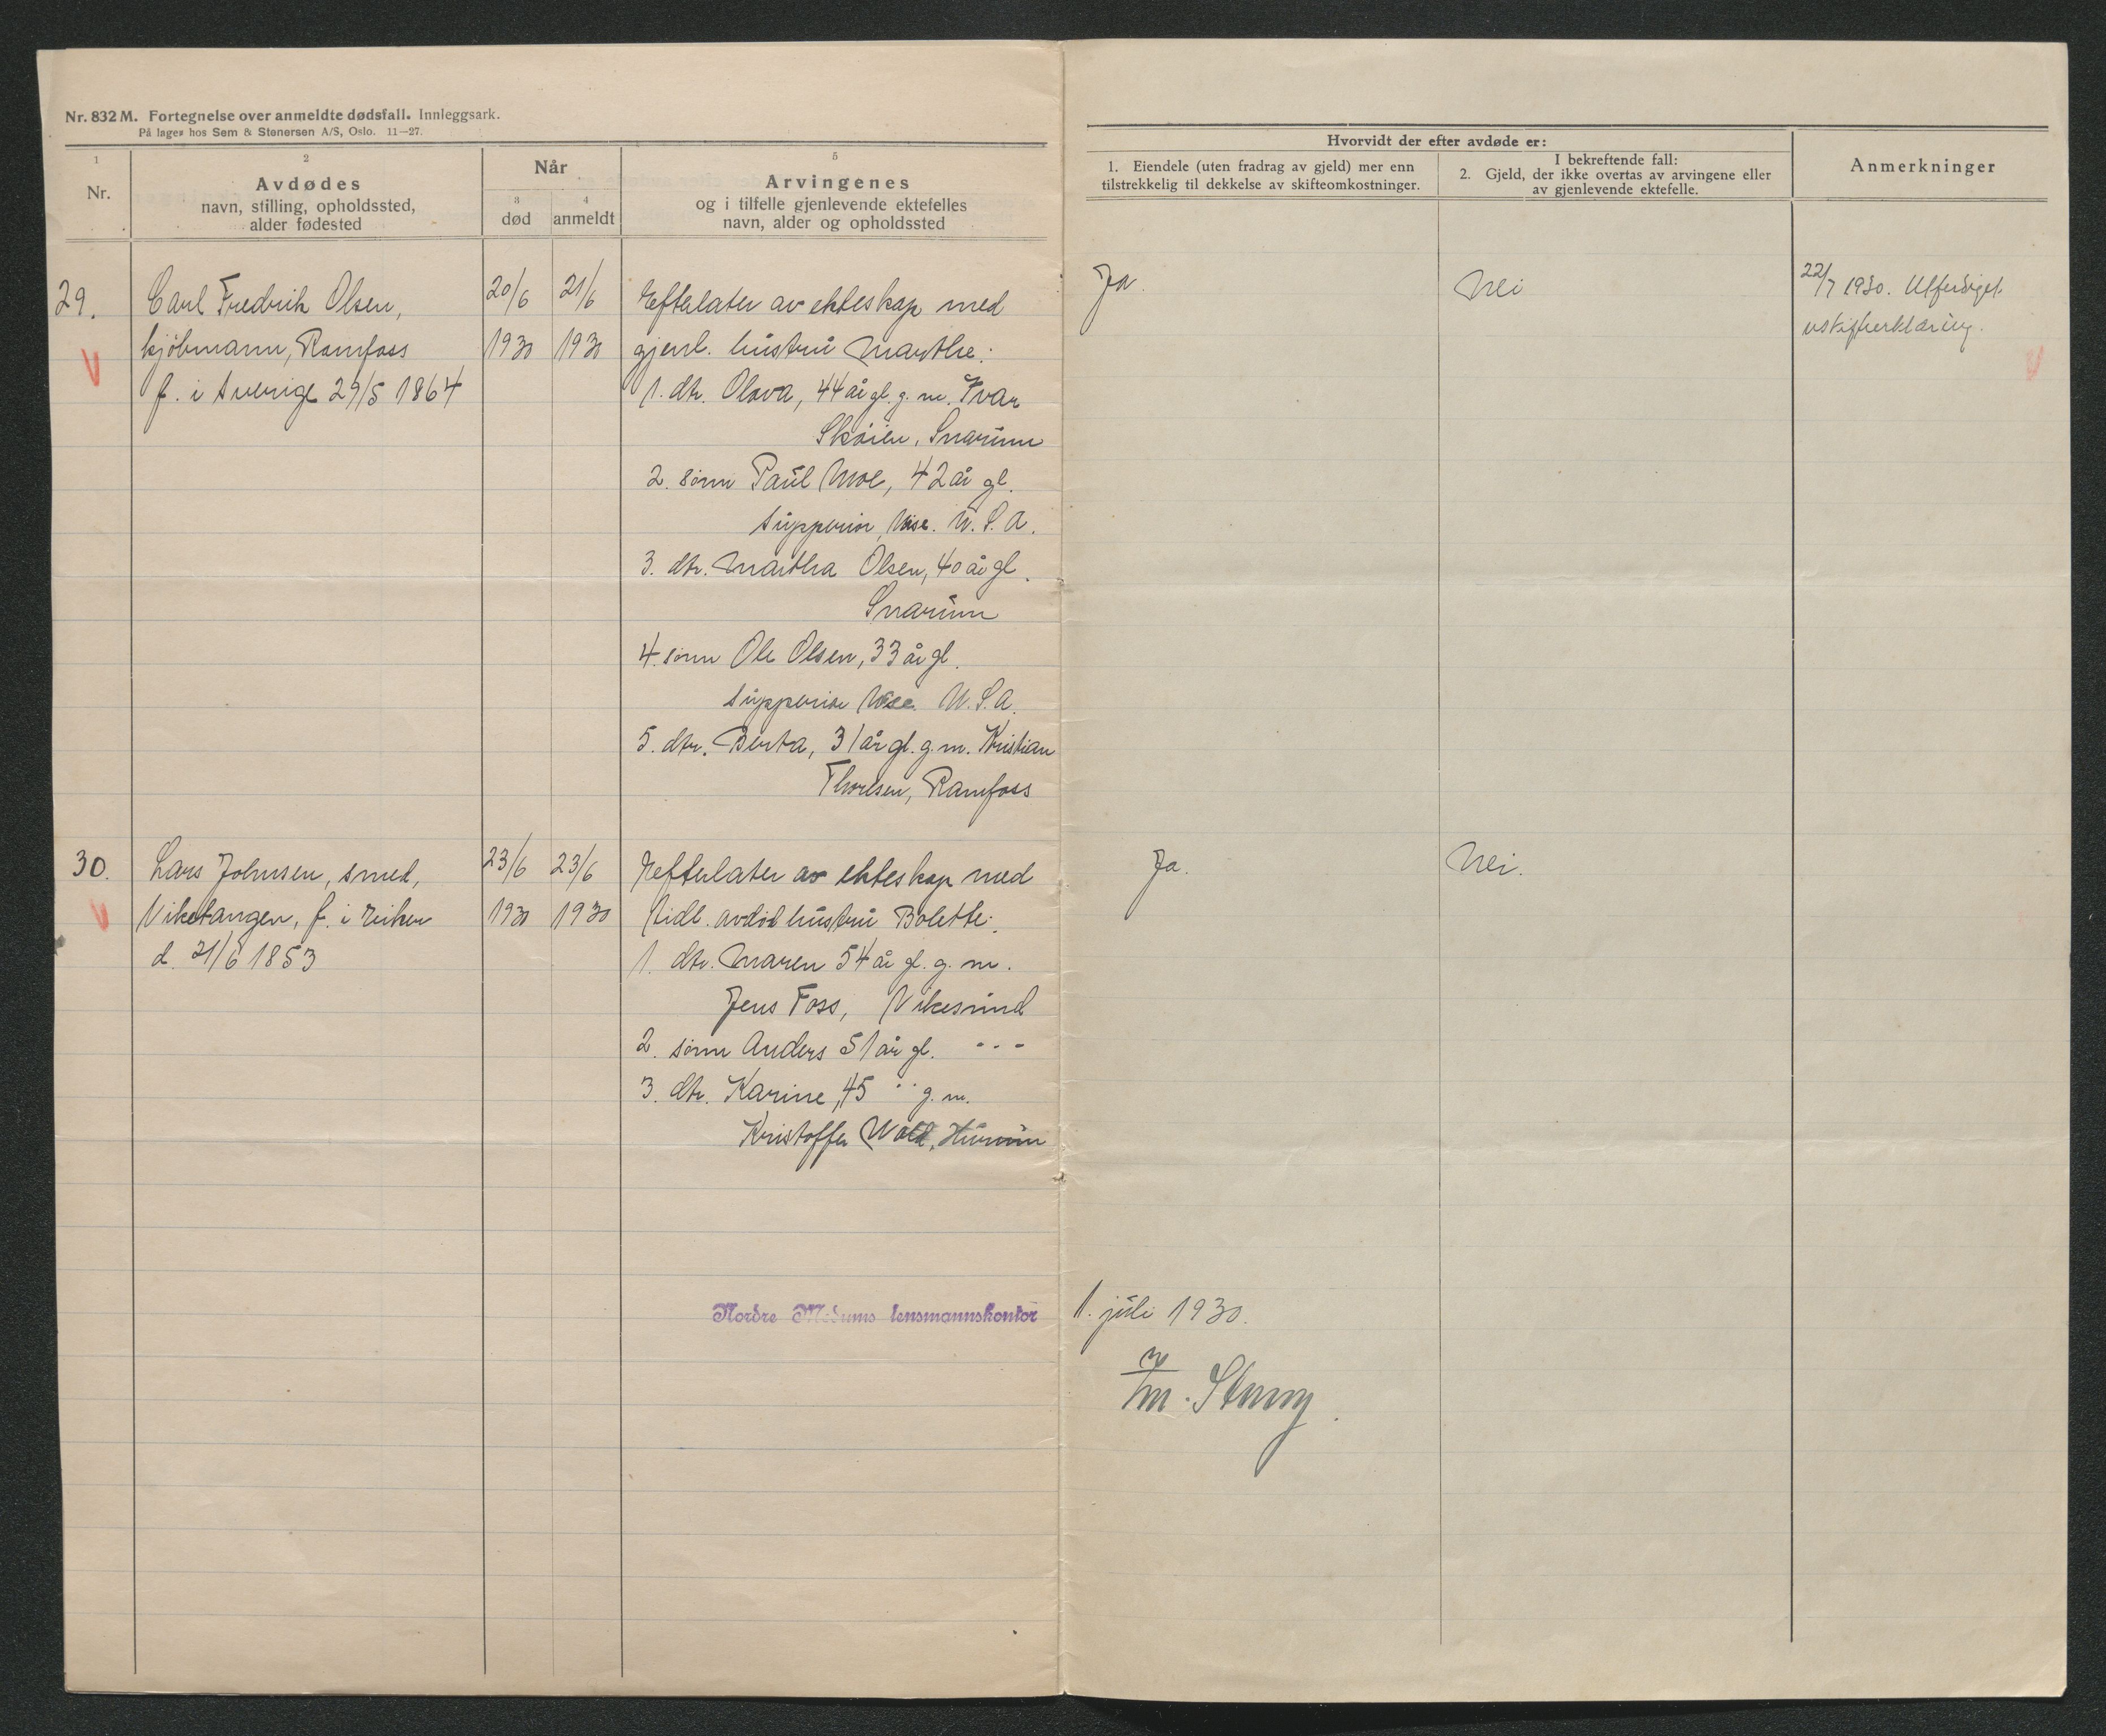 Nr. 832 M. Fortegnelse over anmeldte dødsfall. Innleggsark.
På lager hos Sem & Stenersen A/S, Oslo. 11—27.
1
Nr.
2
Avdødes
navn, stilling, opholdssted,
alder fødested
Når
3
død
4
anmeldt
5
Arvingenes
og i tilfelle gjenlevende ektefelles
navn, alder og opholdssted
Hvorvidt der efter avdøde er:
1. Eiendele (uten fradrag av gjeld) mer enn
tilstrekkelig til dekkelse av skifteomkostninger.
I bekreftende fall:
2. Gjeld, der ikke overtas av arvingene eller
av gjenlevende ektefelle.
Anmerkninger
29.
Carl Fredrik Olsen,
kjöbmann, Ramfoss
f. i Sverige 29/5 1864
20/6
1930
21/6
1930
Efterlater av ekteskap med
gjenl. hustru Marthe:
1. dtr. Olava, 44 år gl. g. m. Ivar
Skóien, Snarum
2. sönn Paul Moe, 42 år gl.
Supperior, Wise. U. S. A.
3. dtr. Martha Olsen, 40 år gl.
Snarum
4. sönn Ole Olsen, 33 år gl.
Supperior Wise. U. S. A.
5. dtr. Berta, 31 år gl. g. m. Kristian
Thorlsen, Ramfoss
Ja.
Nei
22/7 1930. Utferdiget
uskifterklæring.
30.
Lars Johnsen, smed,
Viketangen, f. i Eiker
d. 21/6 1853
23/6
1930
23/6
1930
Efterlater av ekteskap med
tidl. avdöd hustru Bolette:
1. dtr. Maren 54 år gl. g. m.
Jens Foss, Vikesund
2. sönn Anders 51 år gl. - - -
3. dtr. Karine, 45 " g. m.
Kristoffer Wold, Hurum
Ja.
Nei.
Nordre Modums lensmannskontor
1. juli 1930.